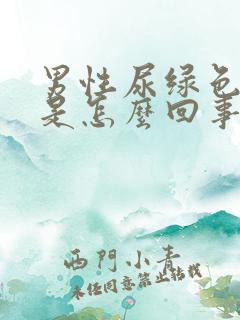 男性尿绿色
是怎麽回事
西門小青
未经同意禁止转载